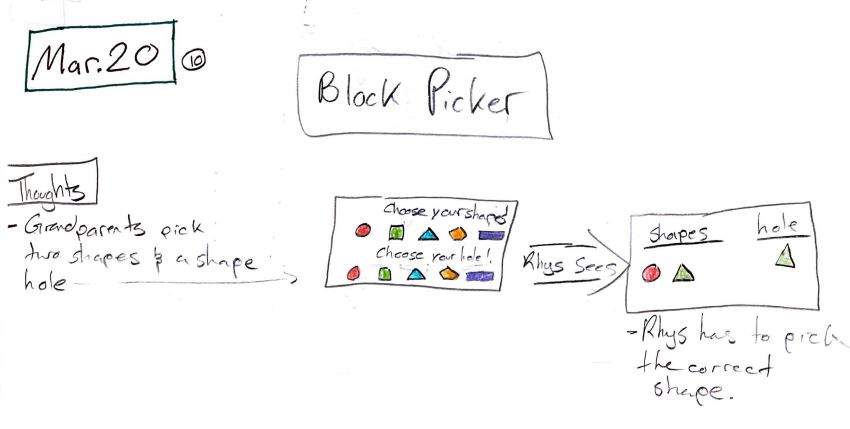 Mar. 20
10
Block Picker
Thoughts
- Grandparents pick
two shapes & a shape
hole
Choose your shapes!
Choose your hole!
Rhys Sees
shapes
hole
- Rhys has to pick
the correct
shape.